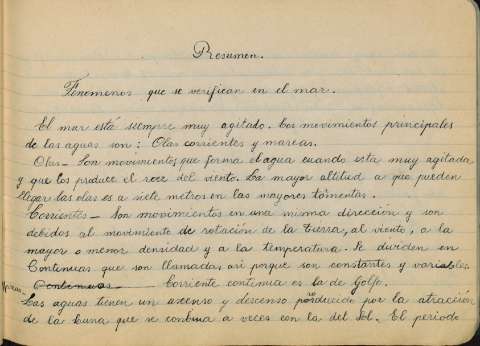 Resumen.
Fenomenos que se verifican en el mar.
El mar está siempre muy agitado. Los movimientos principales
de las aguas son: Olas corrientes y mareas.
Olas— Son movimientos que forma el agua cuando esta muy agitada
y que los produce el roce del viento. La mayor altitud a que pueden
llegar las olas es a siete metros en las mayores tormentas.
Corrientes— Son movimientos en una misma dirección y son
debidos al movimiento de rotación de la tierra, al viento, a la
mayor o menor densidad y a la temperatura. Se dividen en
Continuas que son llamadas asi porque son constantes y variables.
Mareas— Continuas Corriente continua es la de Golfo.
Las aguas tienen un ascenso y descenso producido por la atracción
de la Luna que se combina a veces con la del Sol. El periodo